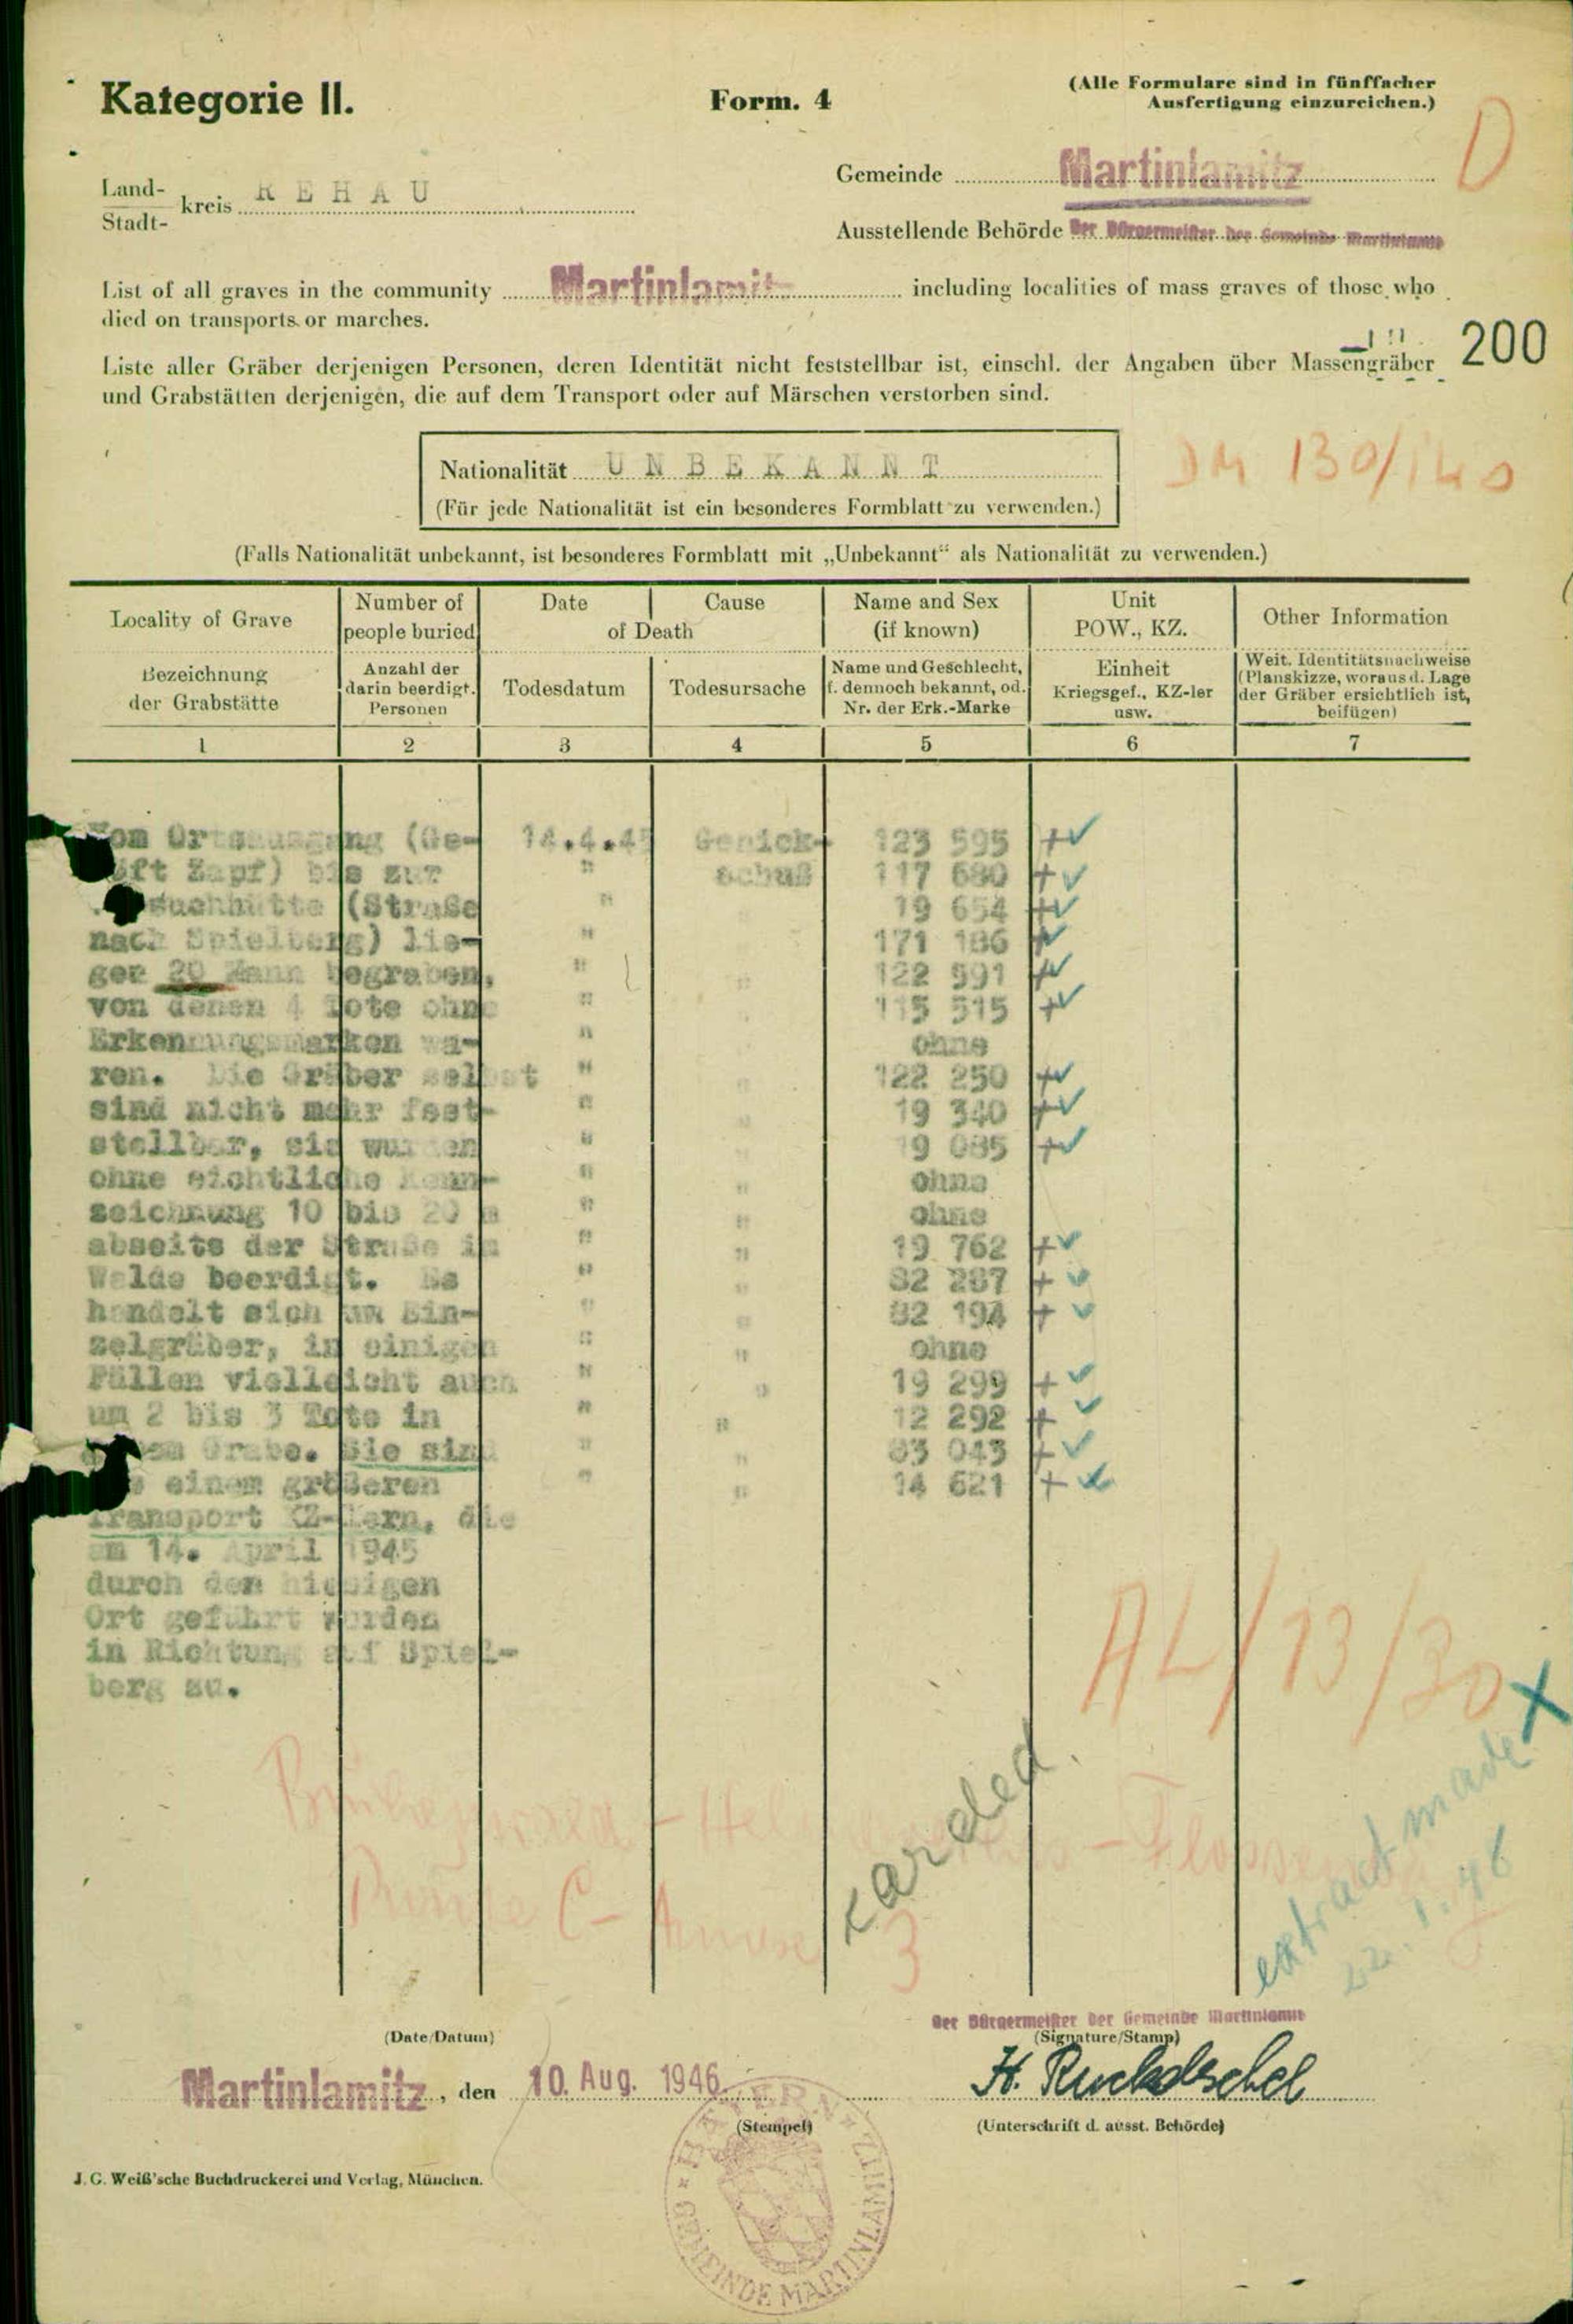 Kategorie II.
Form. 4
(Alle Formulare sind in fünffacher
Ausfertigung einzureichen.)
D
Land-
Stadt-
kreis R E H A U
Gemeinde Martinlamitz
Ausstellende Behörde Der Bürgermeister der Gemeinde Martinlamitz
List of all graves in the community Martinlamitz including localities of mass graves of those who
died on transports or marches.
200
Liste aller Gräber derjenigen Personen, deren Identität nicht feststellbar ist, einschl. der Angaben über Massengräber
und Grabstätten derjenigen, die auf dem Transport oder auf Märschen verstorben sind.
Nationalität U N B E K A N N T
(Für jede Nationalität ist ein besonderes Formblatt zu verwenden.)
DM 130/140
(Falls Nationalität unbekannt, ist besonderes Formblatt mit „Unbekannt“ als Nationalität zu verwenden.)
Locality of Grave
Bezeichnung
der Grabstätte
1
Number of
people buried
Anzahl der
darin beerdigt.
Personen
2
Date Cause
of Death
Todesdatum
3
Todesursache
4
Name and Sex
(if known)
Name und Geschlecht,
f. dennoch bekannt, od.
Nr. der Erk.-Marke
5
Unit
POW., KZ.
Einheit
Kriegsgef., KZ-ler
usw.
6
Other Information
Weit. Identitätsnachweise
(Planskizze, woraus d. Lage
der Gräber ersichtlich ist,
beifügen)
7
Vom Ortsausgang (Ge-
höft Zapf) bis zur
(Straße
nach Spielberg) lie-
gen 20 Mann begraben,
von denen 4 Tote ohne
Erkennungsmarken wa-
ren. Die Gräber selbst
sind nicht mehr fest-
stellbar, sie wurden
ohne sichtliche Kenn-
zeichnung 10 bis 20 m
abseits der Straße im
Walde beerdigt. Es
handelt sich um Ein-
zelgräber, in einigen
Fällen vielleicht auch
um 2 bis 3 Tote in
einem Grabe. Sie sind
einem größeren
Transport KZ-lern, die
am 14. April 1945
durch den hiesigen
Ort geführt wurden
in Richtung auf Spiel-
berg zu.
14.4.45 Genick-
schuß
123 595 +
117 680 +
19 654 +
171 186 +
122 591 +
115 515 +
ohne
122 250 +
19 340 +
9 085 +
ohne
ohne
19 762 +
82 287 +
82 194 +
ohne
19 299 +
12 292 +
83 043 +
14 621 +
AL/13/30
X
carded.
extract made
22.1.46
3
Der Bürgermeister der Gemeinde Martinlamitz
(Date/Datum)
(Signature/Stamp)
Martinlamitz, den 10. Aug. 1946
H. Ruckdeschel
(Stempel)
(Unterschrift d. ausst. Behörde)
BAYERN
GEMEINDE MARTINLAMITZ
J. G. Weiß'sche Buchdruckerei und Verlag, München.